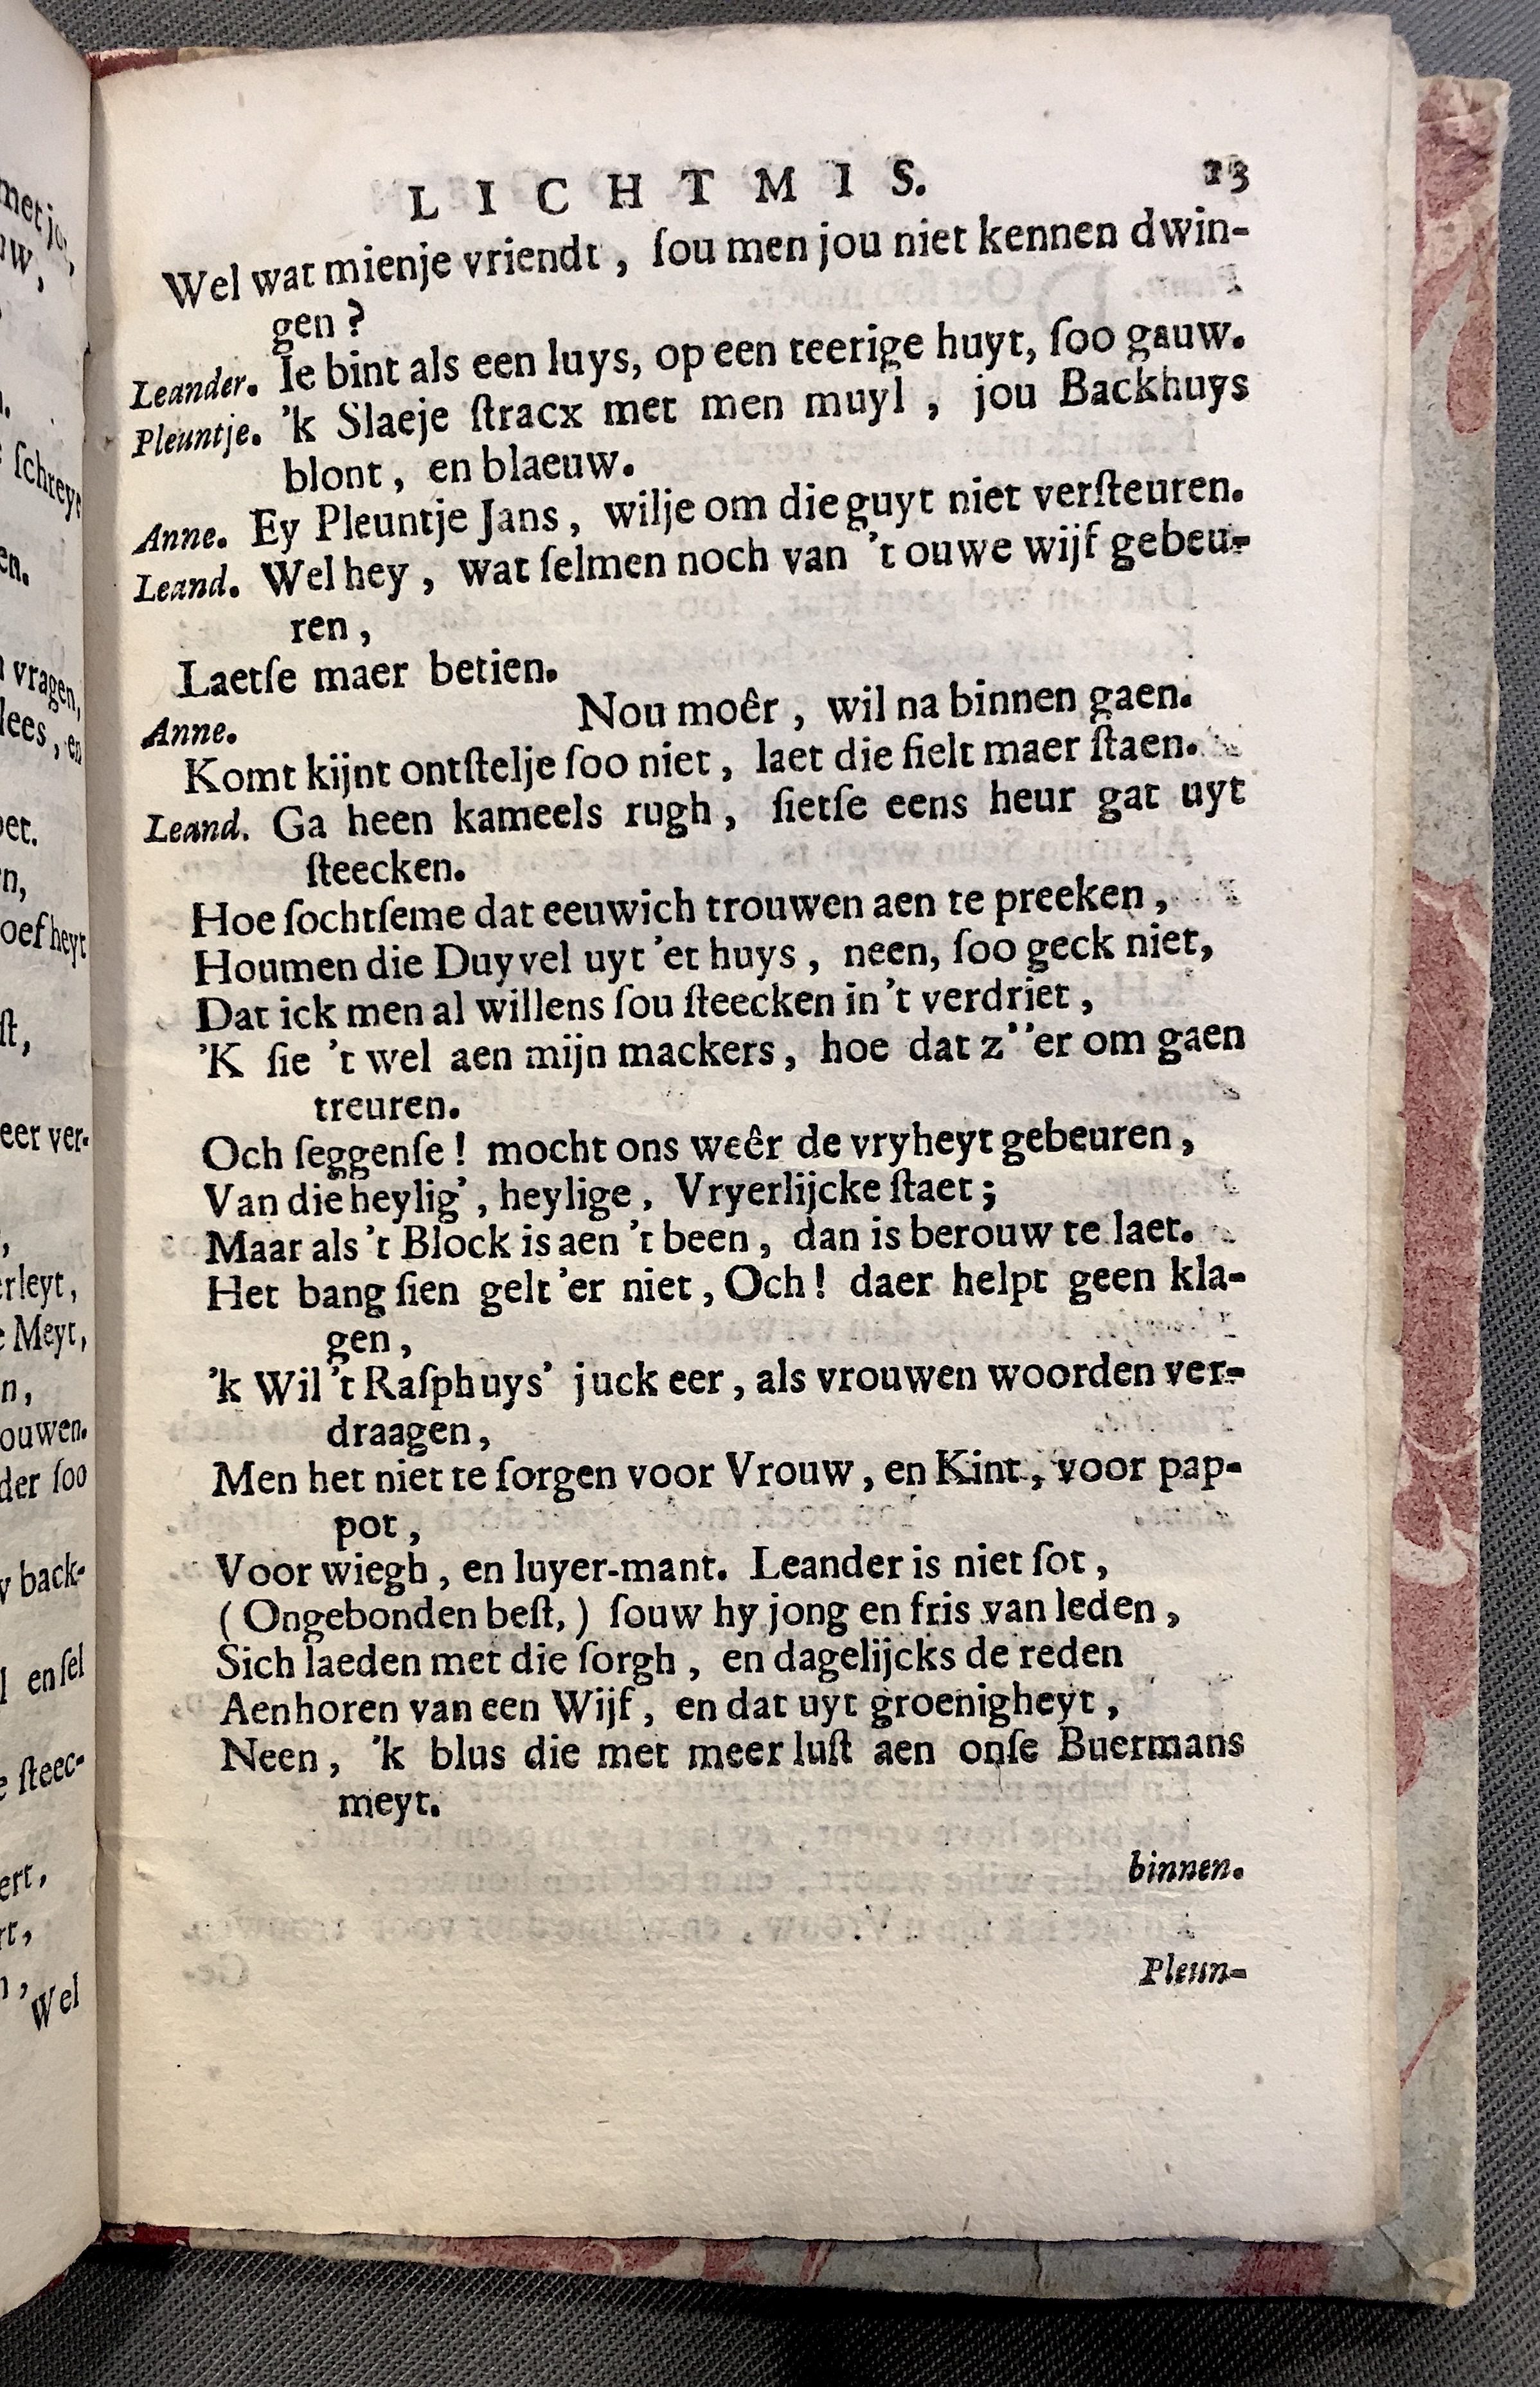 LICHTMIS. 23
Wel wat mienje vriendt, ſou men jou niet kennen dwin-
gen?
Leander. Ie bint als een luys, op een teerige huyt, ſoo gauw.
Pleuntje. 'k Slaeje ſtracx met men muyl, jou Backhuys
blont, en blaeuw.
Anne. Ey Pleuntje Jans, wilje om die guyt niet verſteuren.
Leand. Wel hey, wat ſelmen noch van 't ouwe wijf gebeu-
ren,
Laetſe maer betien.
Anne. Nou moêr, wil na binnen gaen.
Komt kijnt ontſtelje ſoo niet, laet die fielt maer ſtaen.
Leand. Ga heen kameels rugh, ſietſe eens heur gat uyt
ſteecken.
Hoe ſochtſeme dat eeuwich trouwen aen te preeken,
Houmen die Duyvel uyt 'et huys, neen, ſoo geck niet,
Dat ick men al willens ſou ſteecken in 't verdriet,
'K ſie 't wel aen mijn mackers, hoe dat z''er om gaen
treuren.
Och ſeggenſe! mocht ons weêr de vryheyt gebeuren,
Van die heylig', heylige, Vryerlijcke ſtaet;
Maar als 't Block is aen 't been, dan is berouw te laet.
Het bang ſien gelt 'er niet, Och! daer helpt geen kla-
gen,
'k Wil 't Raſphuys' juck eer, als vrouwen woorden ver-
draagen,
Men het niet te ſorgen voor Vrouw, en Kint, voor pap-
pot,
Voor wiegh, en luyer-mant. Leander is niet ſot,
(Ongebonden beſt,) ſouw hy jong en fris van leden,
Sich laeden met die ſorgh, en dagelijcks de reden
Aenhoren van een Wijf, en dat uyt groenigheyt,
Neen, 'k blus die met meer luſt aen onſe Buermans
meyt.
binnen.
Pleun-